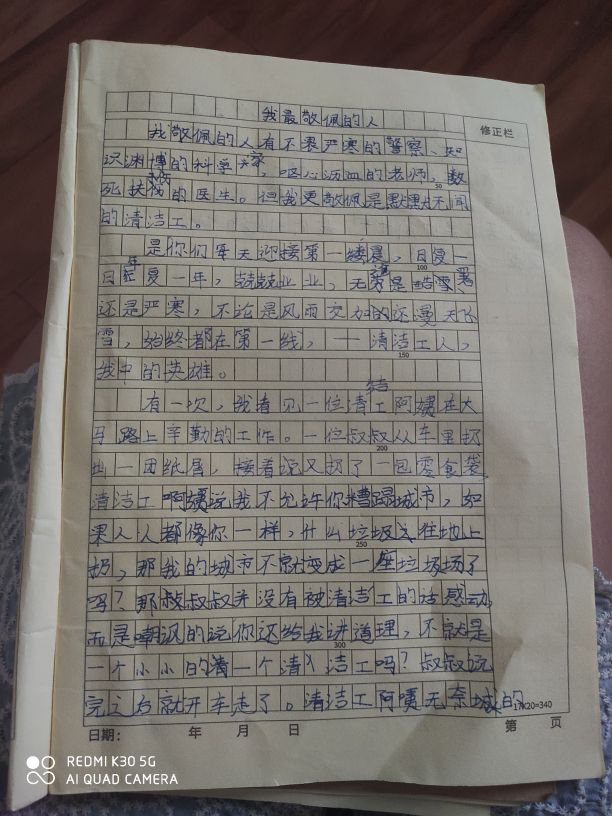 我最敬佩的人
修正栏
我敬佩的人有不畏严寒的警察、知
识渊博的科学家,呕心沥血的老师,救
死扶伤的医生。但我更敬佩是默默无闻
50
的清洁工。
是你们每天迎接第一缕晨,日复一
100
日年复一年,兢兢业业,无论是酷暑
还是严寒,不论是风雨交加的还漫天飞
雪,始终都在第一线,一清洁工人,
150
我中的英雄。
有一次,我看见一位清洁工阿姨在大
马路上辛勤的工作。一位叔叔从车里扔
200
出一团纸屑,接着说又扔了一包零食袋
清洁工啊姨说我不允许你糟蹋城市,如
果人人都像你一样,什么垃圾往地上
250
扔,那我的城市不就变成一座垃圾场了
吗?那叔叔叔并没有被清洁工的话感动,
而是嘲讽的说你还给我讲道理,不就是
300
一个小小的清一个清洁工吗?叔叔说
完之后就开车走了。清洁工阿姨无奈的
17X20=340
日期: 年 月 日 第 页
REDMI K30 5G
AI QUAD CAMERA